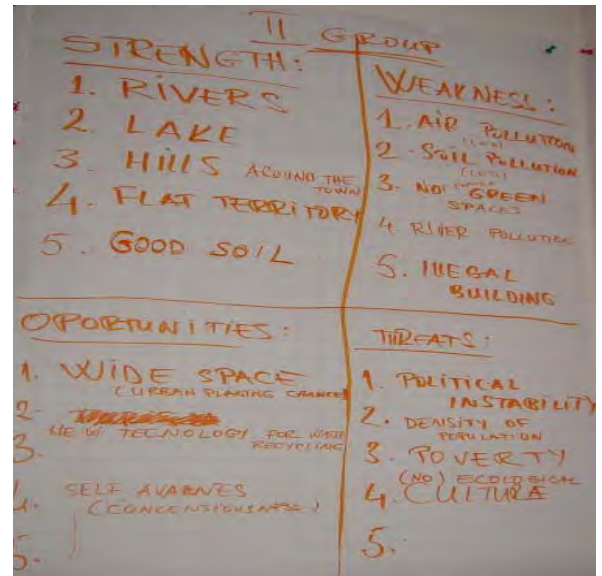 II GROUP
STRENGTH:
1. RIVERS
2. LAKE
3. HILLS AROUND THE
TOWN
4. FLAT TERRITORY
5. GOOD SOIL
WEAKNESS:
1. AIR POLLUTION
2. SOIL POLLUTION
3. NO GREEN
SPACES
4. RIVER POLLUTION
5. ILLEGAL
BUILDING
OPORTUNITIES:
1. WIDE SPACE
(URBAN PLANING CHANCE)
2.
NEW TECNOLOGY FOR WASTE
RECYCLING
3.
4. SELF AVARNES
5.
THREATS:
1. POLITICAL
INSTABILITY
2. DENSITY OF
POPULATION
3. POVERTY
(NO) ECOLOGICAL
4. CULTURE
5.